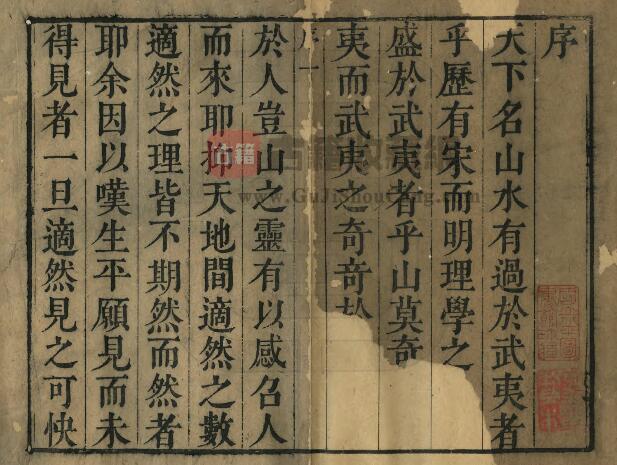 序
天下名山水有過於武夷者
乎歷有宋而明理學之
盛於武夷者乎山莫奇
夷而武夷之奇竒於
序 一
於人豈山之靈有以感召人
而來耶抑天地間適然之數
適然之理皆不期然而然者
耶余因以嘆生平願見而未
得見者一旦適然見之可快
古籍
www.GuJiShouCang.com